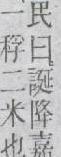 民曰誕降嘉
一稃二米也